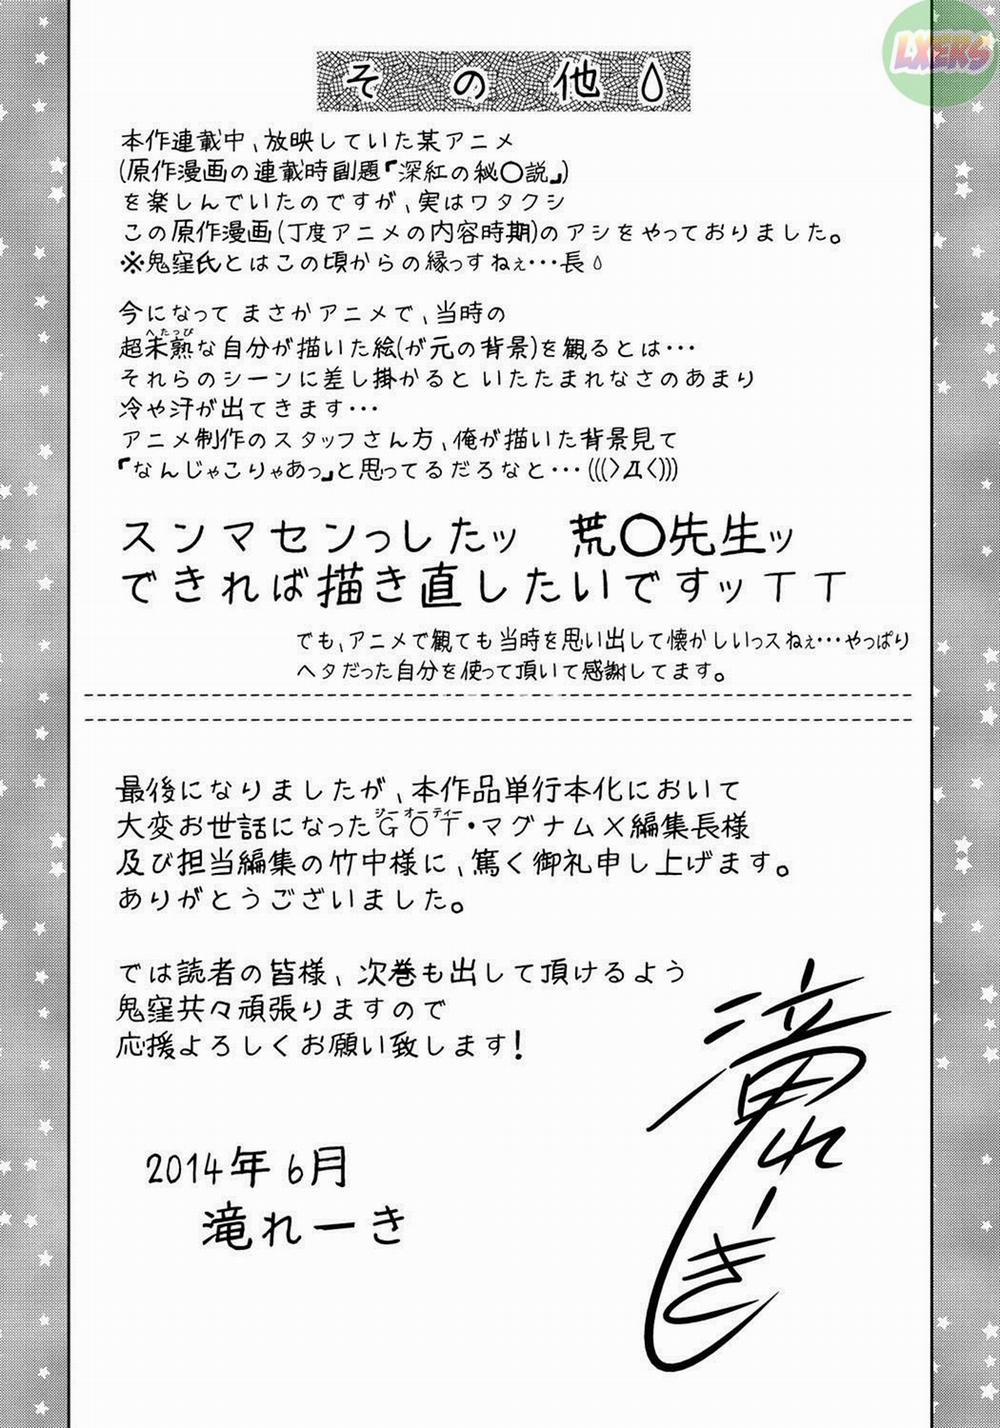 LXERS
その他
本作連載中、放映していた某アニメ
(原作漫画の連載時副題『深紅の秘〇説』)
を楽しんでいたのですが、実はワタクシ
この原作漫画(丁度アニメの内容時期)のアシをやっておりました。
※鬼窪氏とはこの頃からの縁っすねぇ・・・長
今になって まさかアニメで、当時の
へたっぴ
超未熟な自分が描いた絵(が元の背景)を観るとは・・・
それらのシーンに差し掛かると いたたまれなさのあまり
冷や汗が出てきます・・・
アニメ制作のスタッフさん方、俺が描いた背景見て
『なんじゃこりゃあっ』と思ってるだろなと・・・(((>Д<)))
スンマセンっしたッ 荒〇先生ッ
できれば描き直したいですッTT
でも、アニメで観ても当時を思い出して懐かしいっスねぇ・・・やっぱり
ヘタだった自分を使って頂いて感謝してます。
最後になりましたが、本作品単行本化において
ジーオーティー
大変お世話になったGOT・マグナムX編集長様
及び担当編集の竹中様に、篤く御礼申し上げます。
ありがとうございました。
では読者の皆様、次巻も出して頂けるよう
鬼窪共々頑張りますので
応援よろしくお願い致します!
2014年6月
滝れーき
滝れーき